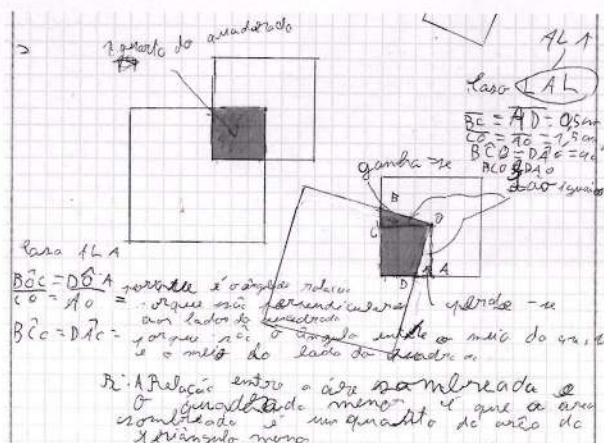 1 quarto do quadrado
ALA
Caso LAL
BC = AD = 0,5cm
CO = AO = 1,5cm
BĈO = DÂO =
BCO DAO
são iguais
ganha-se
B
O
C
D
A
perde-se
Caso ALA
BÔC = DÔA porque é o ângulo
CO = AO = porque são perpendiculares
aos lados do quadrado
BĈC = DÂC = porque são o ângulo entre o meio do
e o meio do lado do quadrado
R: A Relação entre a área sombreada e
o quadrado menor é que a área
sombreada é um quarto da área do
triângulo menor